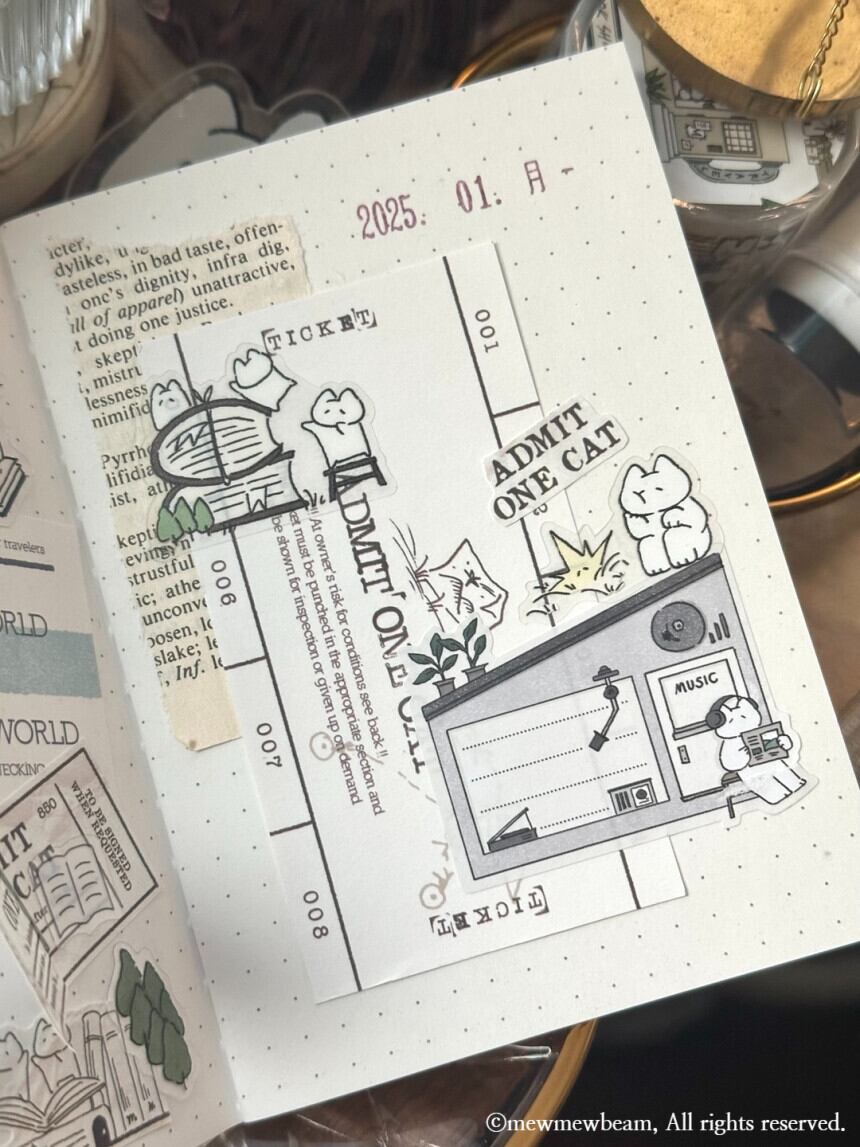 2025. 01. 月 -
acter,
dylike, u
asteless, in bad taste, offen-
one's dignity, infra dig,
ll of apparel) unattractive,
t doing one justice.
skept
, mistru
lessness
nimifid
Pyrrho
lifidia
ist, ath
kepti
eving, n
strustful
ic; athe
unconv
oosen, lo
slake; le
f, Inf. le
[TICKET]
001
ADMIT
ONE CAT
ADMIT ONE CAT
!! At owner's risk for conditions see back !!
ket must be punched in the appropriate section and
be shown for inspection or given up on demand
006
007
008
MUSIC
[TICKET]
travelers
ORLD
WORLD
850
TO BE SIGNED
WHEN REQUESTED
MIT
CAT
TRAVEL
©mewmewbeam, All rights reserved.